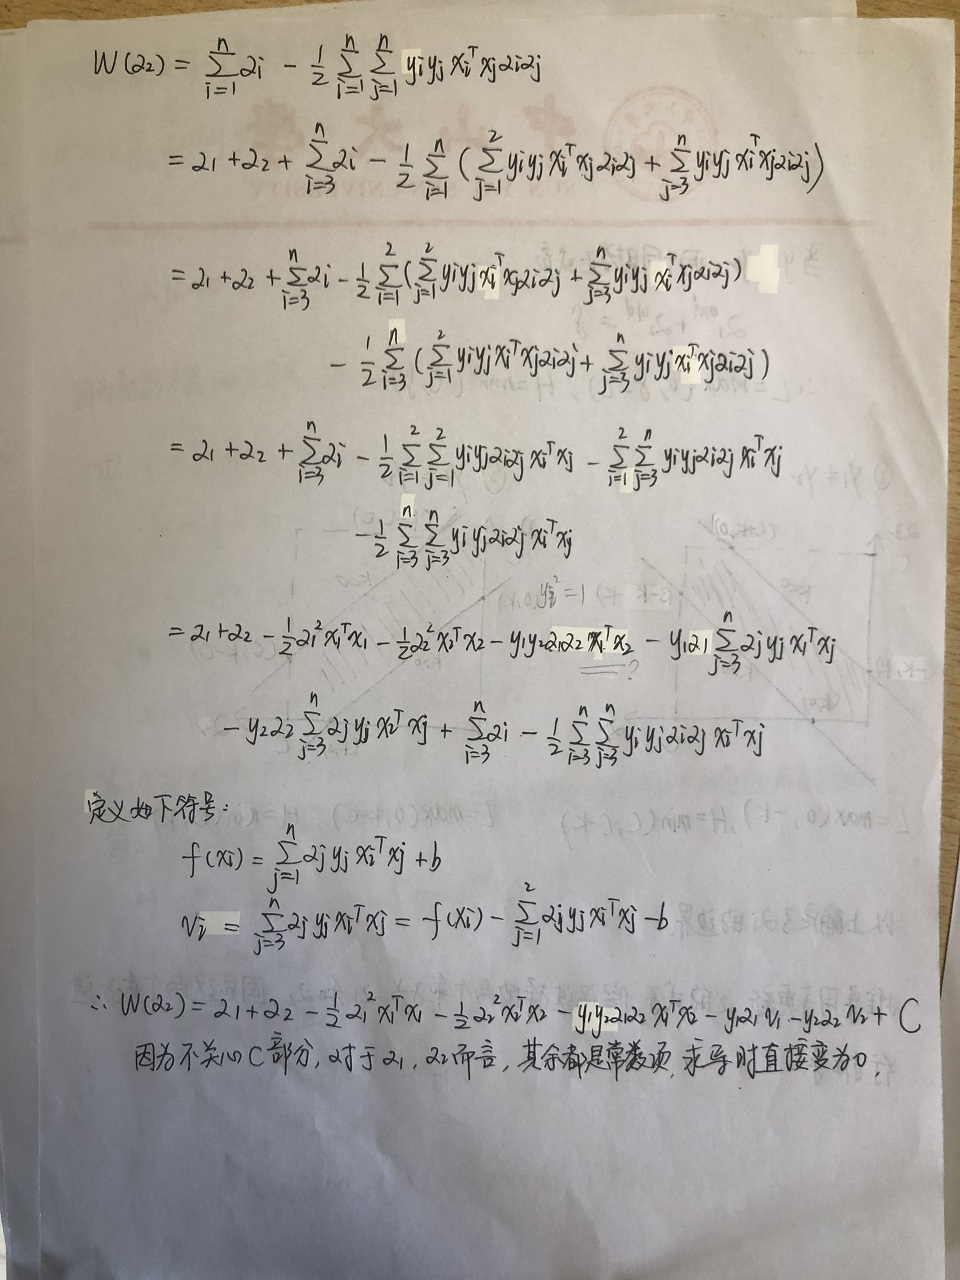 W(α₂) = Σ_{i=1}^{n} αi − 1/2 Σ_{i=1}^{n} Σ_{j=1}^{n} yiyj xiᵀxjαiαj
= α₁ + α₂ + Σ_{i=3}^{n} αi − 1/2 Σ_{i=1}^{n} ( Σ_{j=1}^{2} yiyj xiᵀxjαiαj + Σ_{j=3}^{n} yiyj xiᵀxjαiαj )
= α₁ + α₂ + Σ_{i=3}^{n} αi − 1/2 Σ_{i=1}^{2} ( Σ_{j=1}^{2} yiyj xiᵀxjαiαj + Σ_{j=3}^{n} yiyj xiᵀxjαiαj )
− 1/2 Σ_{i=3}^{n} ( Σ_{j=1}^{2} yiyj xiᵀxjαiαj + Σ_{j=3}^{n} yiyj xiᵀxjαiαj )
= α₁ + α₂ + Σ_{i=3}^{n} αi − 1/2 Σ_{i=1}^{2} Σ_{j=1}^{2} yiyjαiαj xiᵀxj − Σ_{i=1}^{2} Σ_{j=3}^{n} yiyjαiαj xiᵀxj
− 1/2 Σ_{i=3}^{n} Σ_{j=3}^{n} yiyjαiαj xiᵀxj
yi² = 1
= α₁ + α₂ − 1/2 α₁² x₁ᵀx₁ − 1/2 α₂² x₂ᵀx₂ − y₁y₂α₁α₂ x₁ᵀx₂ − y₁α₁ Σ_{j=3}^{n} αjyj x₁ᵀxj
?
− y₂α₂ Σ_{j=3}^{n} αjyj x₂ᵀxj + Σ_{i=3}^{n} αi − 1/2 Σ_{i=3}^{n} Σ_{j=3}^{n} yiyjαiαj xiᵀxj
定义如下符号:
f(xi) = Σ_{j=1}^{n} αjyj xiᵀxj + b
vi = Σ_{j=3}^{n} αjyj xiᵀxj = f(xi) − Σ_{j=1}^{2} αjyj xiᵀxj − b
∴ W(α₂) = α₁ + α₂ − 1/2 α₁² x₁ᵀx₁ − 1/2 α₂² x₂ᵀx₂ − y₁y₂α₁α₂ x₁ᵀx₂ − y₁α₁v₁ − y₂α₂v₂ + C
因为不关心C部分, 对于α₁, α₂而言, 其余都是常数项, 求导时直接变为0.